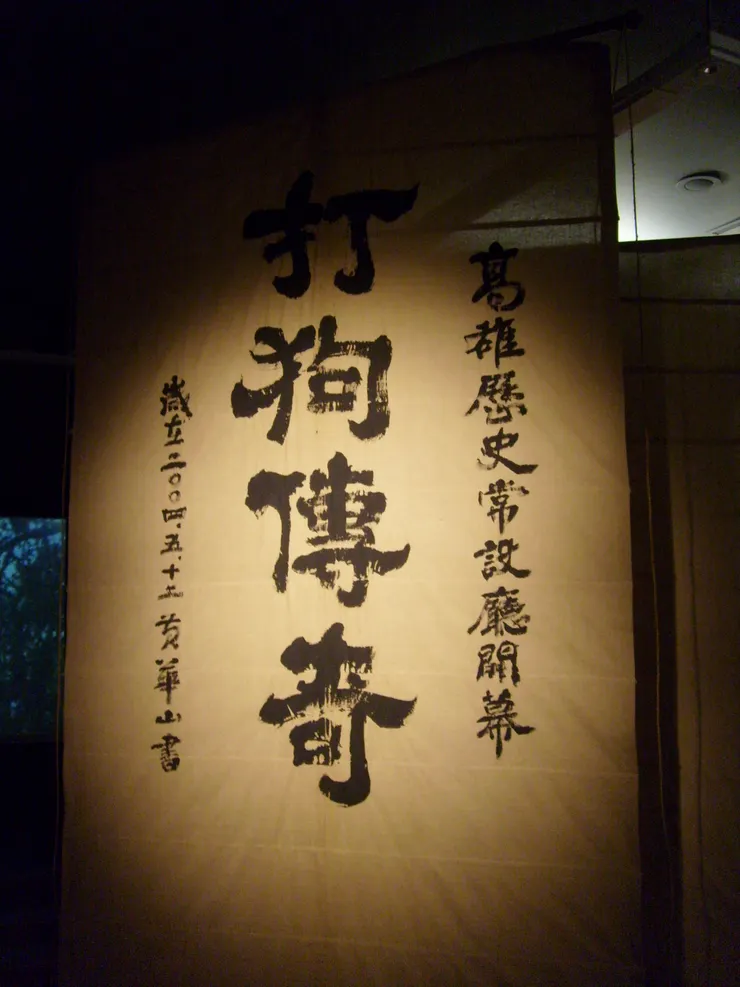 高雄歷史常設廳開幕
打狗傳奇
歲在二〇〇四.五.十二 黃華山書